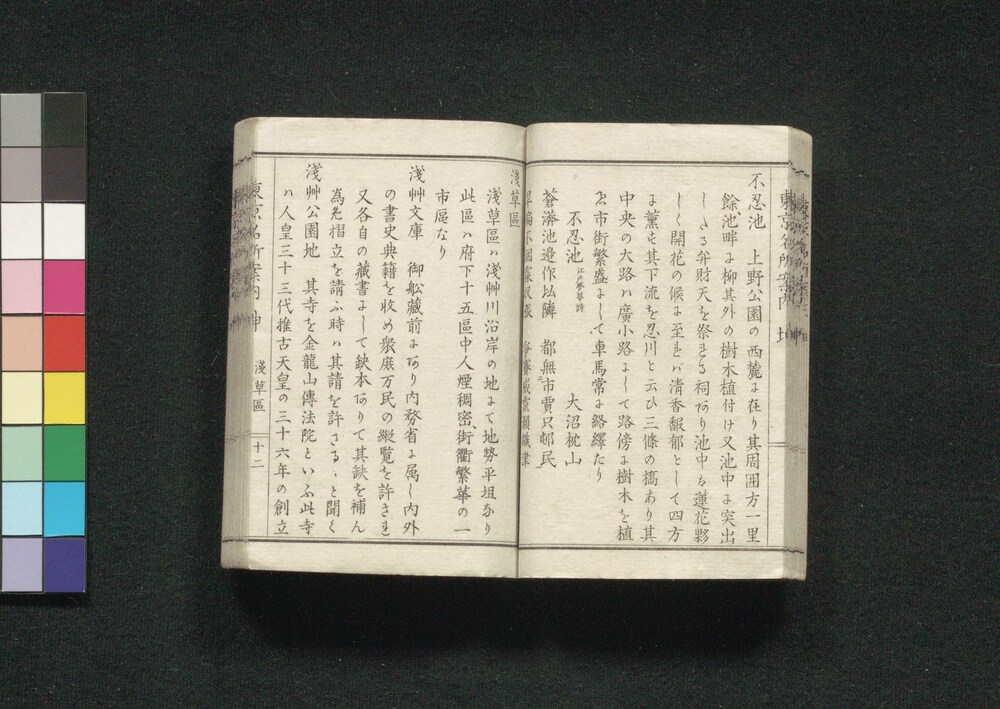 不忍池　上野公園の西麓に在り其周囲方一里
餘池畔に柳其外の樹木植付け又池中に突出
しさる弁財天を祭まる祠あり池中る蓮花夥
しく開花の候に至れバ清香馥郁として四方
に薫もず其下流を忍川と云ひ三條の橋あり其
中央の大路ハ廣小路にして路傍に樹木を植
ゑ市街繁盛にして車馬常に絡繹たり
不忍池　江戸夢華詩　大沼枕山
蒼滸池邉作佔隣　都無市賈只邨民
淺草區
淺草區ハ淺艸川沿岸の地にて地勢平坦なり
此區ハ府下十五區中人煙稠密、街衢繁華の一
市廛なり
淺艸文庫　御舩藏前にあり内務省に属し内外
の書史典籍を收め衆庶万民の縦覧を許さる
又各自の藏書にして缺本ありて其缺を補ん
為め摺立を請ふ時ハ其請を許さる、と開く
淺艸公園地　其寺を金龍山傳法院といふ此寺
ハ人皇三十三代推古天皇の三十六年の創立
東京名所案内　坤
淺草區
十二